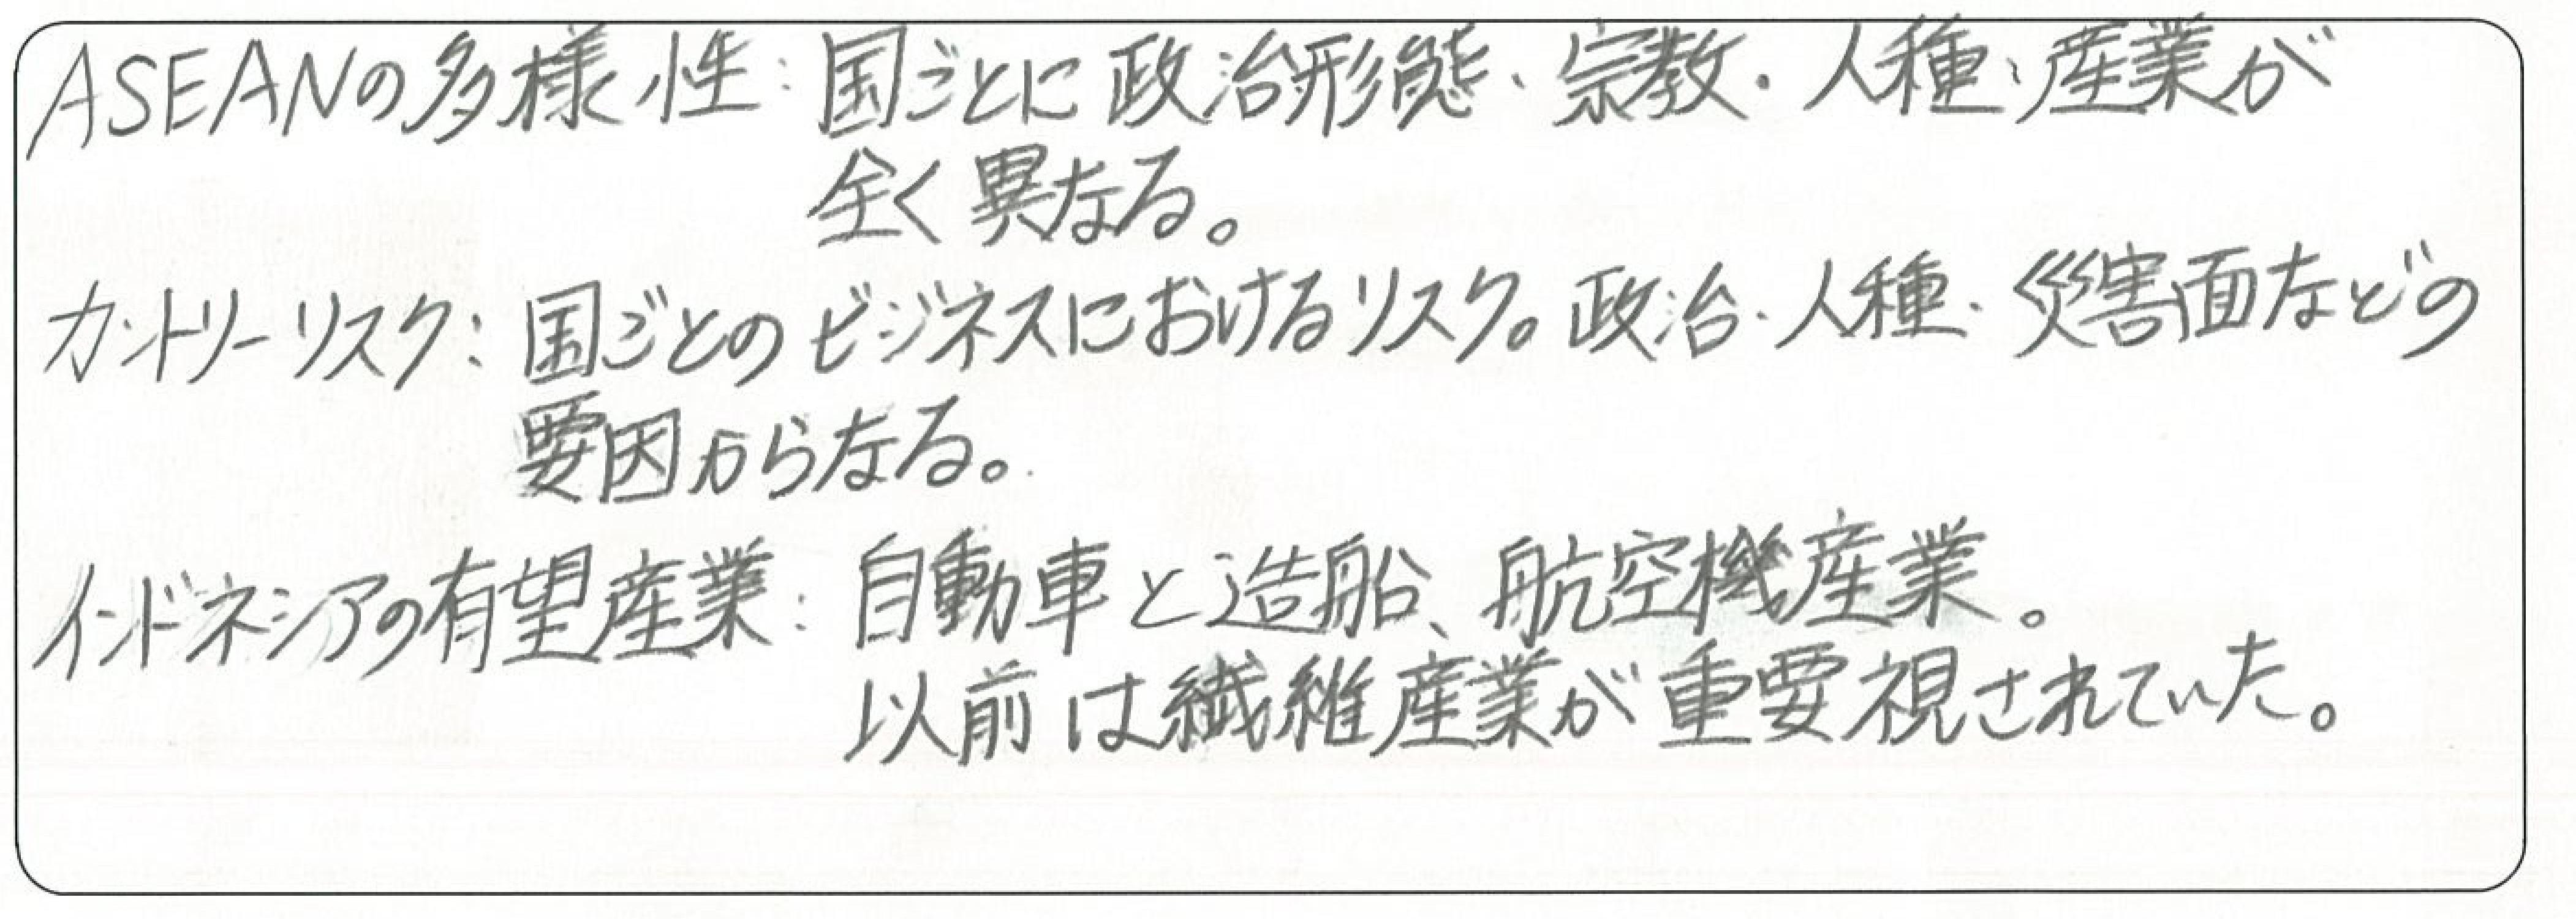 ASEANの多様性：国ごとに政治形態・宗教・人種・産業が
全く異なる。
カントリーリスク：国ごとのビジネスにおけるリスク。政治・人種・災害面などの
要因からなる。
インドネシアの有望産業：自動車と造船、航空機産業。
以前は繊維産業が重要視されていた。